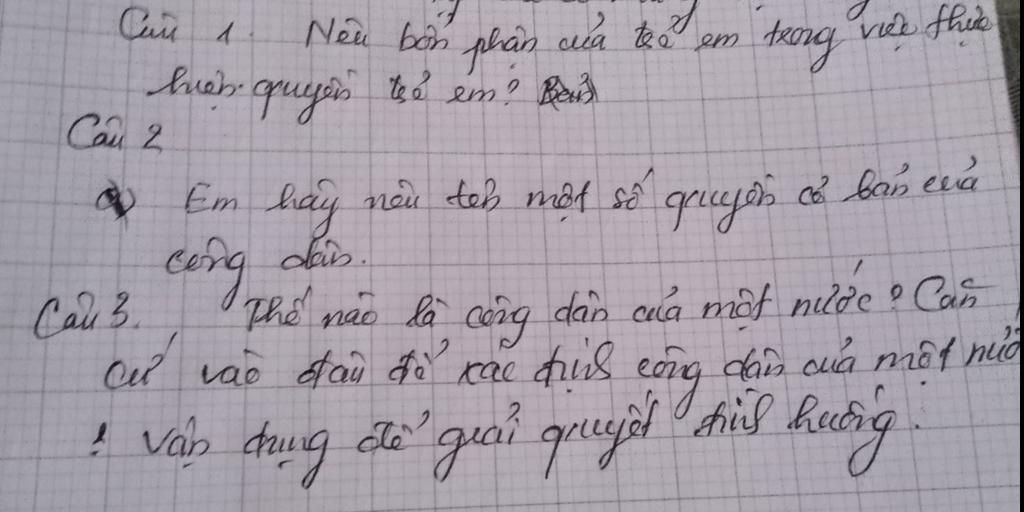 Câu 1. Nêu bổn phận của trẻ em trong việc thực
hiện quyền trẻ em?
Câu 2
Em hãy nêu tên một số quyền cơ bản của
công dân.
Câu 3. Thế nào là công dân của một nước? Căn
cứ vào đâu để xác định công dân của một nước
! vận dụng để giải quyết tình huống.